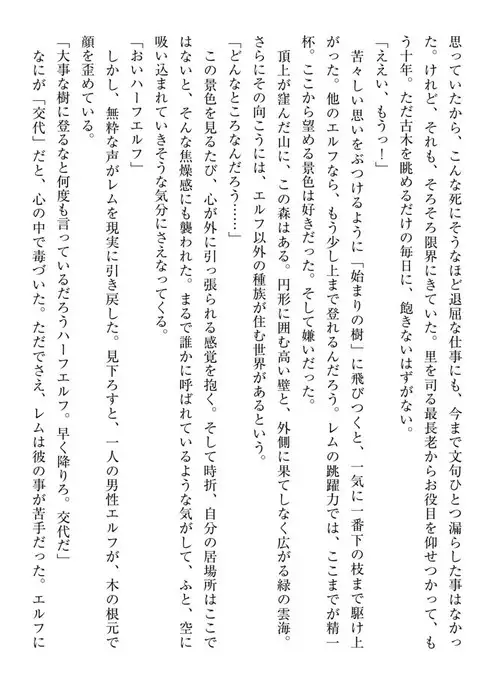 思っていたから、こんな死にそうなほど退屈な仕事にも、今まで文句ひとつ漏らした事はなかっ
た。けれど、それも、そろそろ限界にきていた。里を司る最長老からお役目を仰せつかって、も
う十年。ただ古木を眺めるだけの毎日に、飽きないはずがない。
「ええい、もうっ！」
苦々しい思いをぶつけるように「始まりの樹」に飛びつくと、一気に一番下の枝まで駆け上
がった。他のエルフなら、もう少し上まで登れるんだろう。レムの跳躍力では、ここまでが精一
杯。ここから望める景色は好きだった。そして嫌いだった。
頂上が窪んだ山に、この森はある。円形に囲む高い壁と、外側に果てしなく広がる緑の雲海。
さらにその向こうには、エルフ以外の種族が住む世界があるという。
「どんなところなんだろう……」
この景色を見るたび、心が外に引っ張られる感覚を抱く。そして時折、自分の居場所はここで
はないと、そんな焦燥感にも襲われた。まるで誰かに呼ばれているような気がして、ふと、空に
吸い込まれていきそうな気分にさえなってくる。
「おいハーフエルフ」
しかし、無粋な声がレムを現実に引き戻した。見下ろすと、一人の男性エルフが、木の根元で
顔を歪めている。
「大事な樹に登るなと何度も言っているだろうハーフエルフ。早く降りろ。交代だ」
なにが「交代」だと、心の中で毒づいた。ただでさえ、レムは彼の事が苦手だった。エルフに